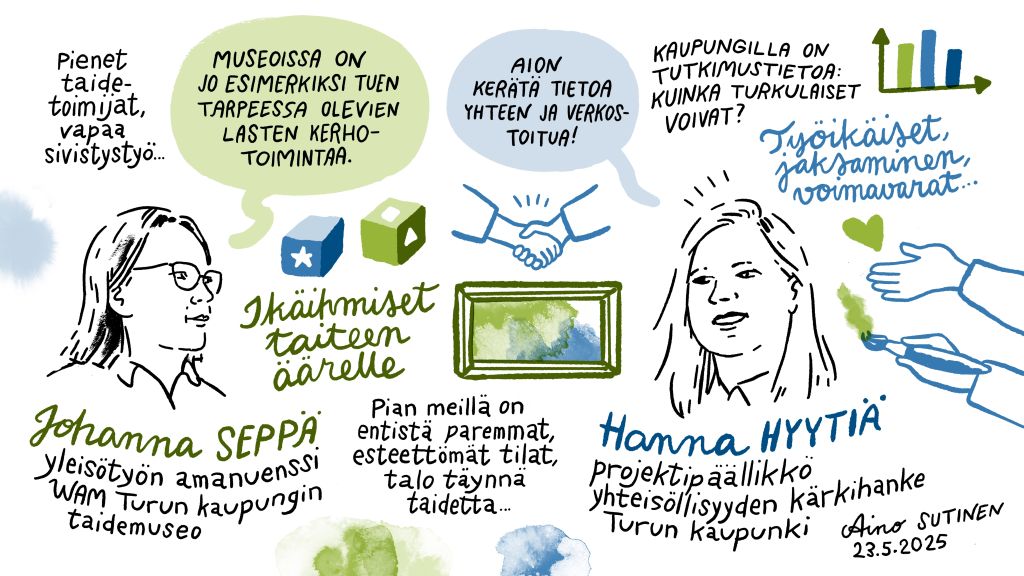 Pienet
taide-
toimijat,
vapaa
sivistystyö...
MUSEOISSA ON
JO ESIMERKIKSI TUEN
TARPEESSA OLEVIEN
LASTEN KERHO-
TOIMINTAA.
AION
KERÄTÄ TIETOA
YHTEEN JA VERKOS-
TOITUA!
KAUPUNGILLA ON
TUTKIMUSTIETOA:
KUINKA TURKULAISET
VOIVAT?
Työikäiset,
jaksaminen,
voimavarat...
Ikäihmiset
taiteen
äärelle
Johanna SEPPÄ
yleisötyön amanuenssi
WAM Turun kaupungin
taidemuseo
Pian meillä on
entistä paremmat,
esteettömät tilat,
talo täynnä
taidetta...
Hanna HYYTIÄ
projektipäällikkö
yhteisöllisyyden kärkihanke
Turun kaupunki
Aino SUTINEN
23.5.2025